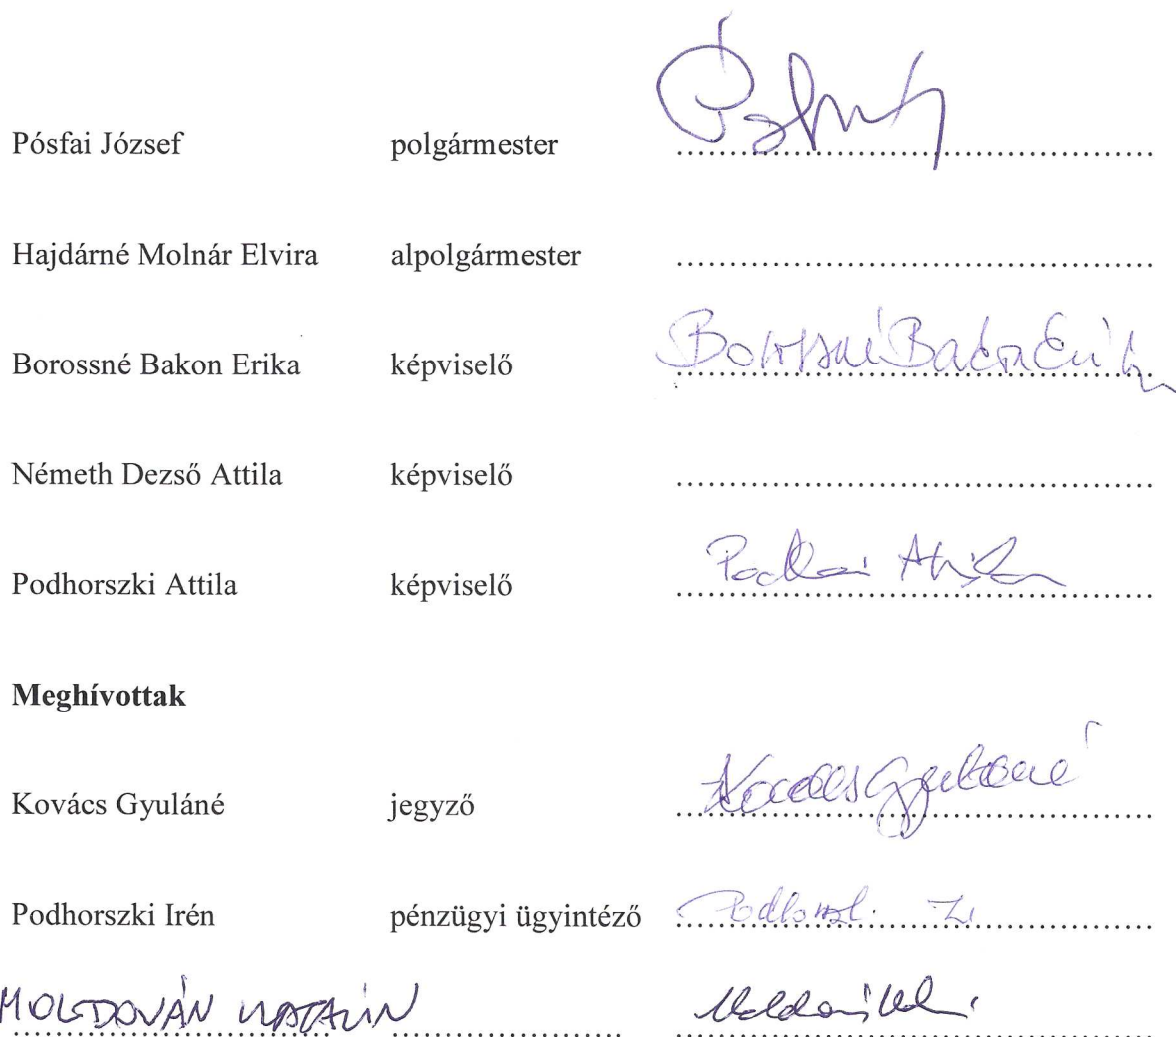 Pósfai József polgármester
Hajdárné Molnár Elvira alpolgármester
Borossné Bakon Erika képviselő Borossné Bakon Erika
Németh Dezső Attila képviselő
Podhorszki Attila képviselő
Meghívottak
Kovács Gyuláné jegyző Kovács Gyuláné
Podhorszki Irén pénzügyi ügyintéző
MOLDOVÁN KATALIN